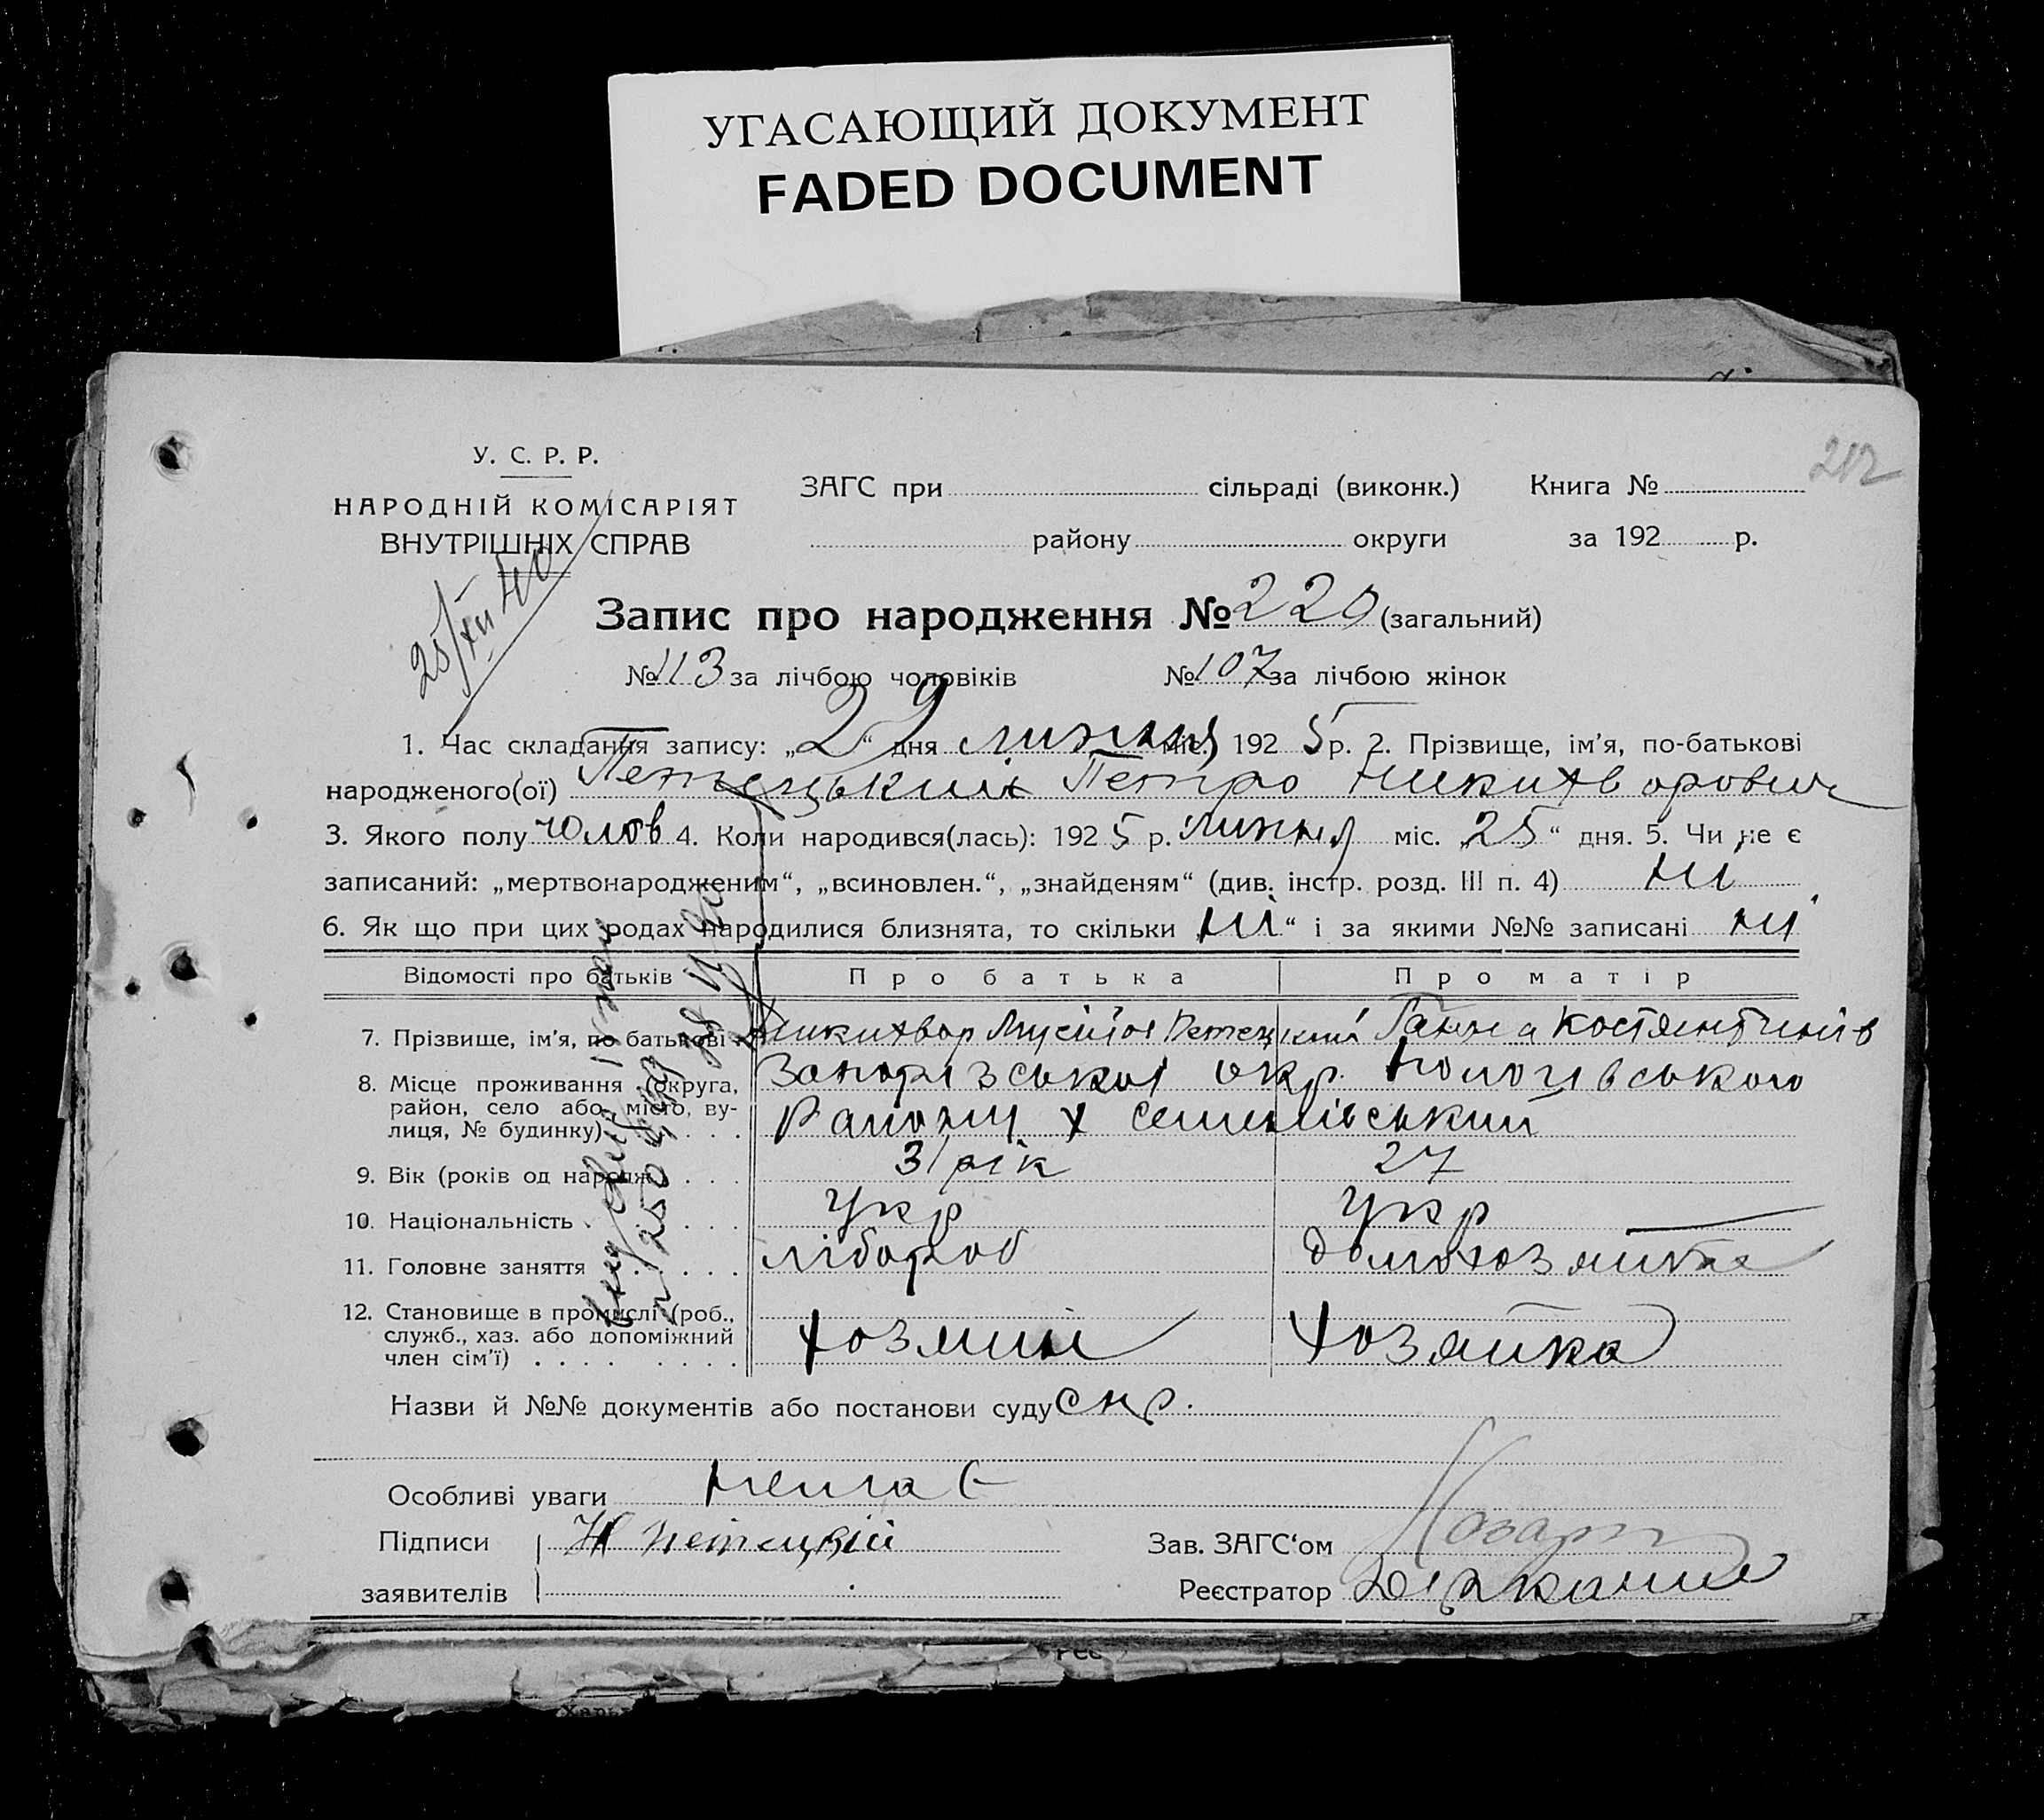 УГАСАЮЩИЙ ДОКУМЕНТ
FADED DOCUMENT
212
У. С. Р. Р.
НАРОДНІЙ КОМІСАРІЯТ
ВНУТРІШНІХ СПРАВ
ЗАГС при сільраді (виконк.) Книга №
району округи за 192 р.
25/XII 40
Запис про народження № 220 (загальний)
№ 113 за лічбою чоловіків № 107 за лічбою жінок
1. Час складання запису: „29“ дня липня міс. 1925 р. 2. Прізвище, ім’я, по-батькові
народженого(ої) Петецький Петро Никихворович
3. Якого полу чолов 4. Коли народився(лась): 1925 р. липня міс. „25“ дня. 5. Чи не є
записаний: „мертвонародженим“, „всиновлен.“, „знайденям“ (див. інстр. розд. III п. 4) ні
6. Як що при цих родах народилися близнята, то скільки „ні“ і за якими №№ записані ні
Відомості про батьків Про батька Про матір
7. Прізвище, ім’я, по батькові Никихвор Мусійов Петецький Ганна Костянтинів
8. Місце проживання (округа, Запорізської окр. Пологівського
район, село або місто, ву- Району х
лиця, № будинку)
9. Вік (років од народж. 31 рік 27
10. Національність Укр Укр
11. Головне заняття хлібороб домохозяйка
12. Становище в промислі (роб.,
служб., хаз. або допоміжний хозяин хозяйка
член сім’ї)
Назви й №№ документів або постанови суду
Особливі уваги немає
Підписи Н Петецкій Зав. ЗАГС‘ом
заявителів Реєстратор